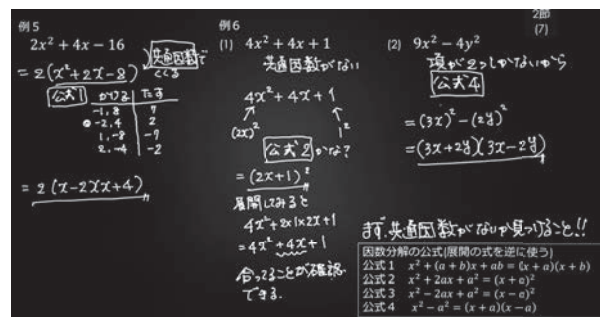 例5
2x² + 4x − 16
= 2(x²+2x−8) 共通因数でくくる
公式1 かける たす
-1, 8 7
-2, 4 2
1, -8 -7
2, -4 -2
= 2(x−2)(x+4)
例6
(1) 4x² + 4x + 1
共通因数がない
4x²+4x+1
(2x)² 1²
公式2 かな?
= (2x+1)²
展開してみると
4x²+2×1×2x+1
=4x²+4x+1
合ってることが確認
できる.
2節
(7)
(2) 9x² − 4y²
項が2つしかないから
公式4
= (3x)² − (2y)²
= (3x+2y)(3x−2y)
まず、共通因数がないか見つけること!!
因数分解の公式(展開の式を逆に使う)
公式1 x² + (a + b)x + ab = (x + a)(x + b)
公式2 x² + 2ax + a² = (x + a)²
公式3 x² − 2ax + a² = (x − a)²
公式4 x² − a² = (x + a)(x − a)